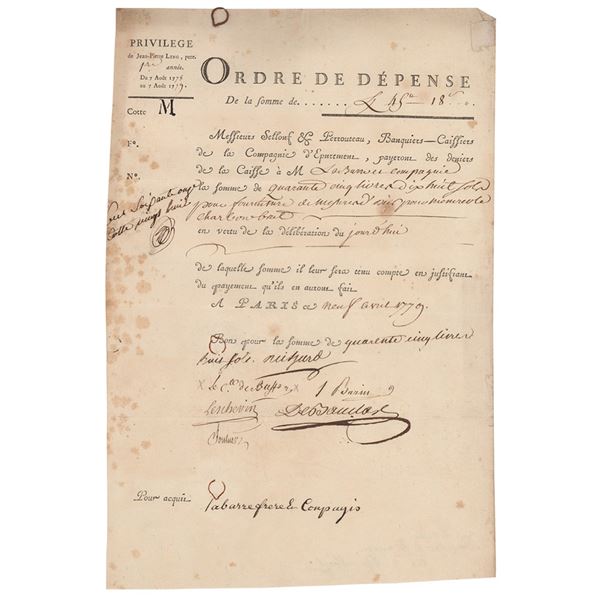 PRIVILEGE
de Jean-Pierre Leng, pere.
année.
Du 7 Août 1778
au 7 Août 1779.
ORDRE DE DÉPENSE
De la somme de....... 45 18
Cotte M
Messieurs Sellonf & Perrouteau, Banquiers-Caissiers
Fo.
de la Compagnie d'Epurement, payeront des deniers
de la Caisse à M Labarre et compagnie
No.
la somme de quarante cinq livres dix huit sols
pour fourniture de
charbon
en vertu de la délibération du jourd'hui
de laquelle somme il leur sera tenu compte en justifiant
du payement qu'ils en auront fait
A PARIS ce neuf avril 1779.
Bon pour la somme de quarente cinq livres
huit sols
Lechevin
Pour acquit
Labarre frere & Compagis